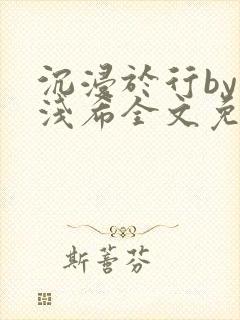 沉浸於行by
浅布全文免
斯蕾芬